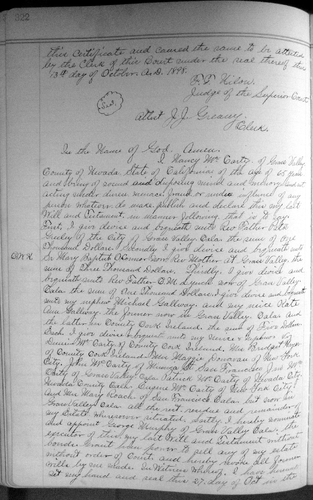 322
this Certificate and caused the same to be attested
by the Clerk of this Court under the seal thereof this
13th day of October A.D. 1898.
Judge of the Superior Court
Seal
Attest J. J. Greany
Clerk.
In the Name of God. Amen.
I Nancy Mc Carty of Grass Valley
County of Nevada State of California of the age of 65 years
and being of sound and disposing mind and memory and not
acting under duress menace fraud or undue influence of any
person whatever do make publish and declare this my last
Will and Testament in manner following that is to say
First, I give devise and bequeath unto Rev Father
of the City of Grass Valley the sum of One
Thousand Dollars. Secondly I give devise and bequeath unto
Sr Mary Baptist O'Connor now Rev Mother at Grass Valley the
sum of Three Thousand Dollars. Thirdly, I give devise and
bequeath unto Rev Father C. M. Lynch now of Grass Valley
Cala the sum of One Thousand Dollars I give devise and bequeath
unto my nephew Michael Gallivey and my niece Kate
Ann Gallivey the former now in Grass Valley Cala and
the latter in County Cork Ireland the sum of Five Dollars
Each I give devise & bequeath unto my Nieces & nephews
Mc Carty of Co Cork Ireland, Mrs Bridget
of County Cork Ireland Miss Maggie Donovan of New York
City, John Mc Carty of San Francisco Dan Mc
Carty of Grass Valley Cala Patrick Mc Carty of Nevada City
Nevada County Cala Eugene Mc Carty of New York City
and Mrs Mary Roach of San Francisco Cala but now in
Grass Valley Cala all the rest residue and remainder of
my Estate wheresoever situated. Lastly I hereby nominate
and appoint George Murphy of Grass Valley Cala the
executor of this my last Will and Testament without
bonds
without order of Court and hereby revoke all former
Wills by me made. In Witness Whereof, I have hereunto
set my hand and seal this 27 day of Oct in the